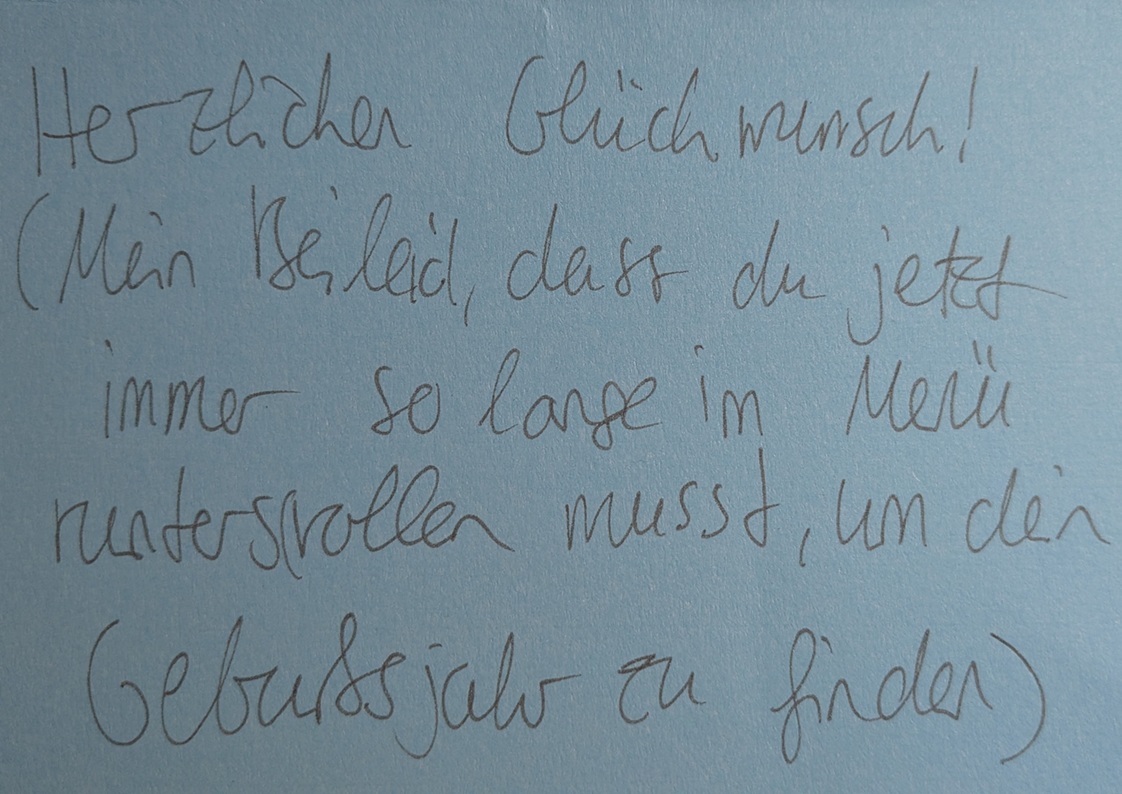 Herzlichen Glückwunsch!
(Mein Beileid, dass du jetzt
immer so lange im Menü
runterscrollen musst, um dein
Geburtsjahr zu finden)